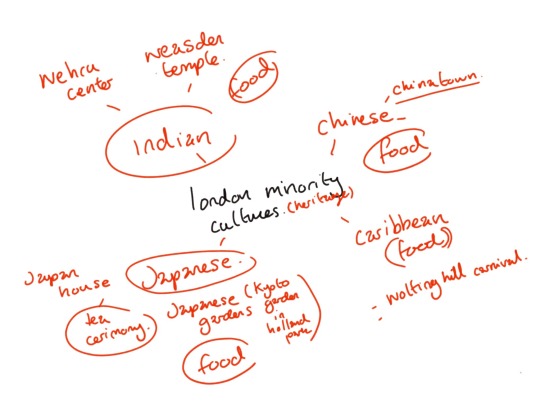 Nehru
center
neasden
temple.
food
Indian
chinatown.
chinese
food
london minority
cultures. (heritage)
caribbean
(food)
- notting hill carnival.
Japan
house
Japanese.
tea
cerimony.
Japanese (Kyoto
gardens garden
in
holland
park)
food